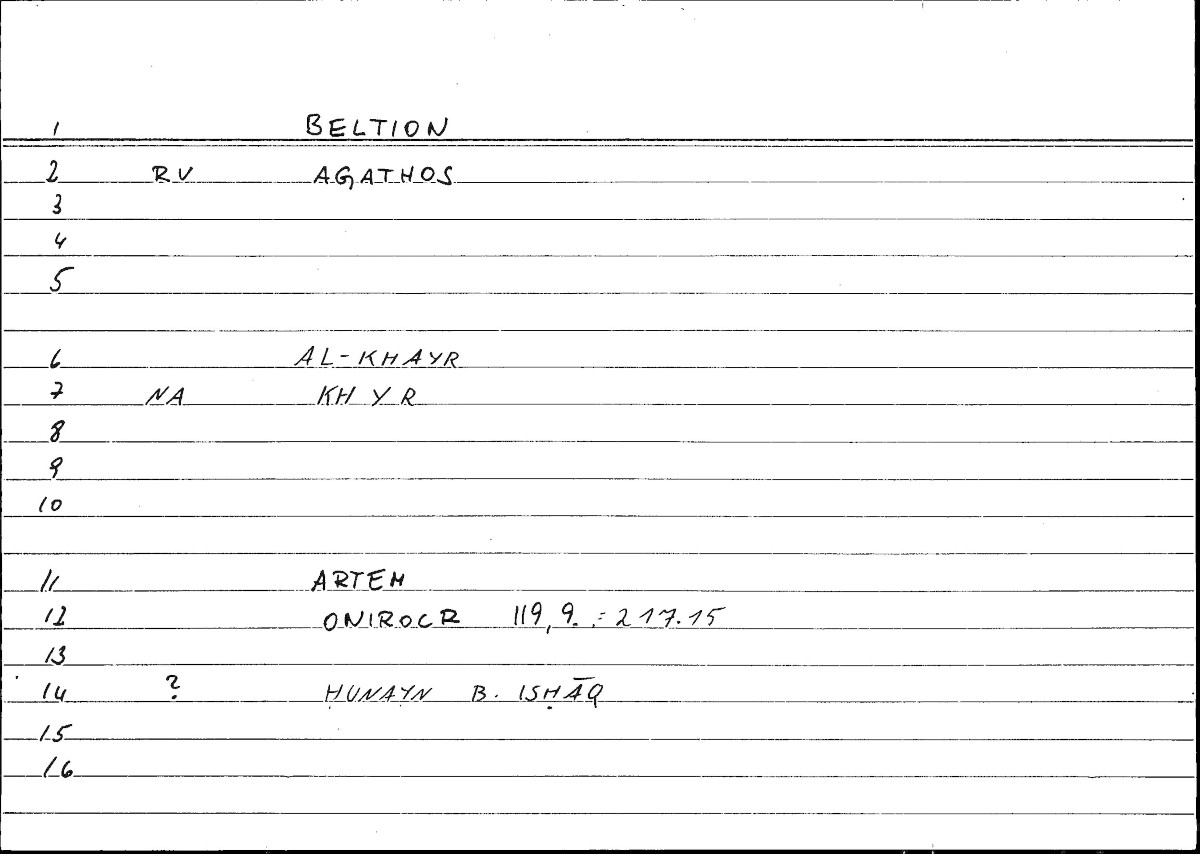 1 BELTION
2 RV AGATHOS
3
4
5
6 AL-KHAYR
7 NA KHYR
8
9
10
11 ARTEM
12 ONIROCR 119,9. = 217.15
13
14 ? ḤUNAYN B. ISḤĀQ
15
16